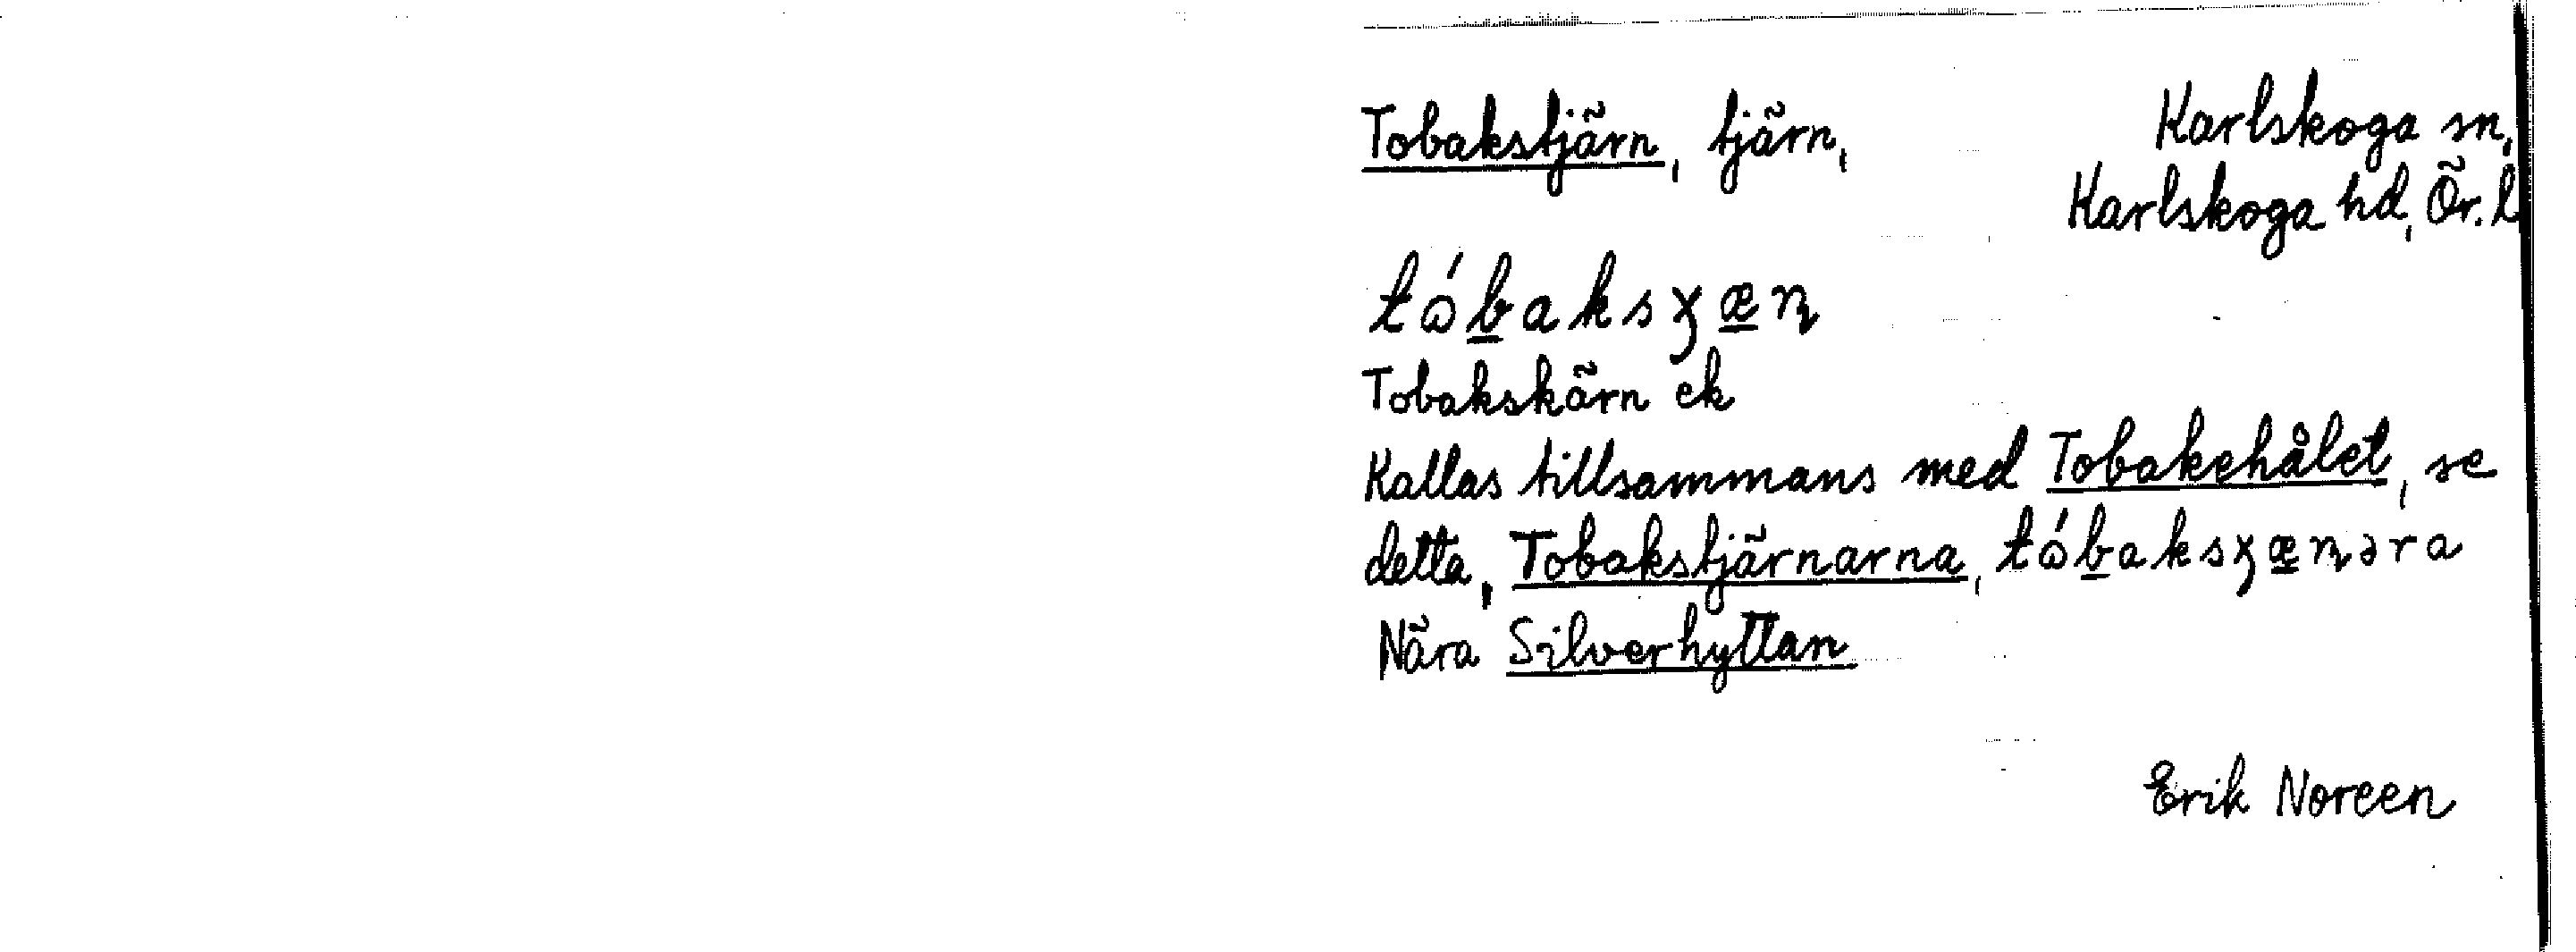 Tobakstjärn, tjärn, Karlskoga sn,
Karlskoga hd, Ör. l
tɷ́b̲aksӽæ̲ɳ
Tobakskärn ek
Kallas tillsammans med Tobakehålet, se
detta, Tobakstjärnarna, tɷ́b̲aksӽæ̲ɳəra
Nära Silverhyttan
Erik Noreen